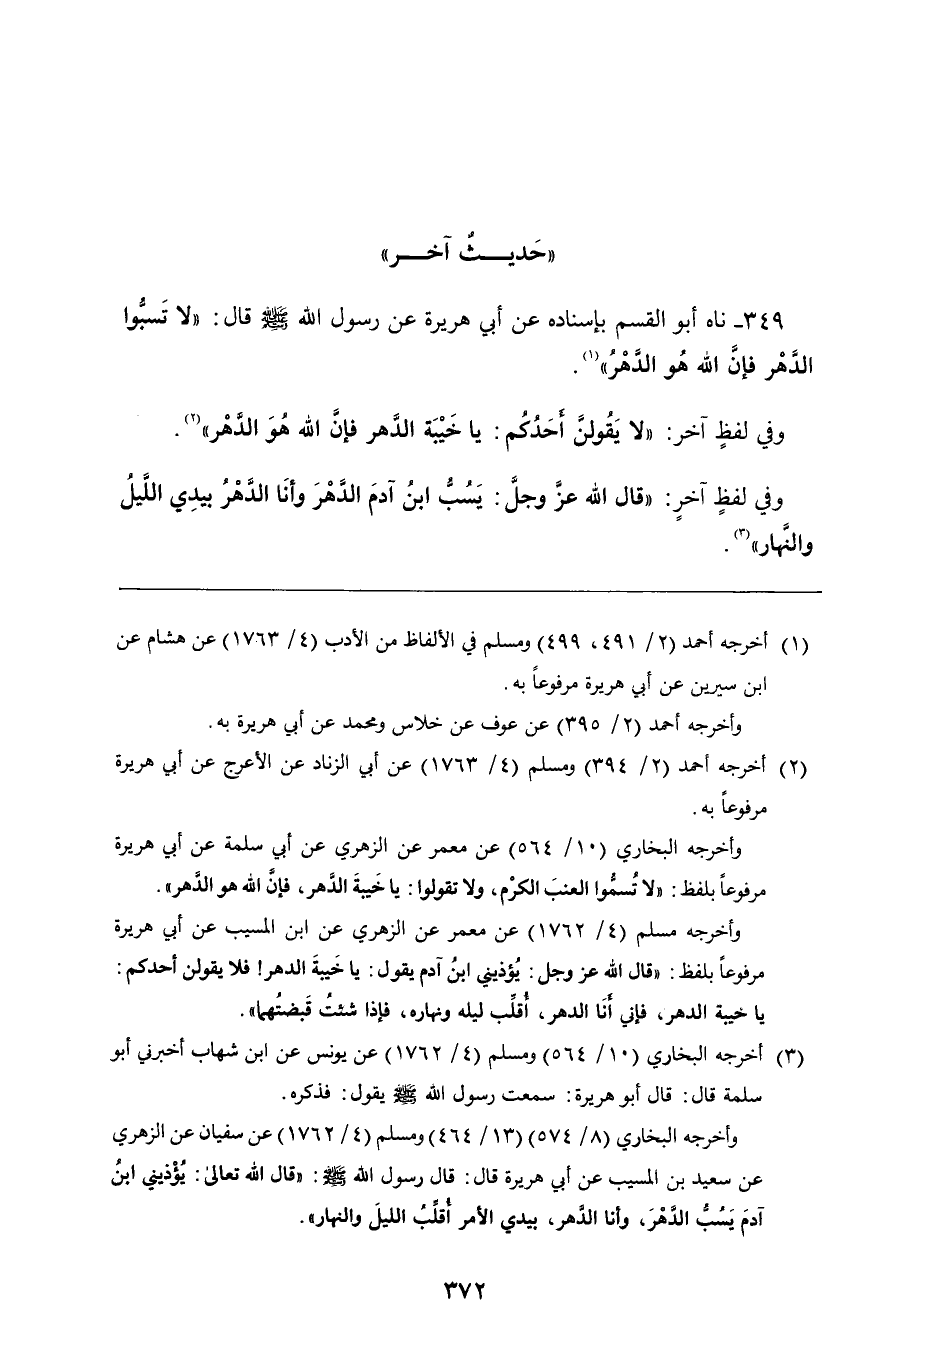 «حَديــــثٌ آخــــر»
٣٤٩ـ ناه أبو القسم بإسناده عن أبي هريرة عن رسول الله ﷺ قال: «لا تَسبُّوا
الدَّهْر فإنَّ الله هُو الدَّهْرُ»(١).
وفي لفظٍ آخر: «لا يَقُولنَّ أَحَدُكُم: يا خَيْبَة الدَّهر فإنَّ الله هُوَ الدَّهْر»(٢).
وفي لفظٍ آخرٍ: «قال الله عزَّ وجلَّ: يَسُبُّ ابنُ آدمَ الدَّهْرَ وأنَا الدَّهْرُ بيدِي اللَّيلُ
والنَّهار»(٣).
(١) أخرجه أحمد (٢/ ٤٩١، ٤٩٩) ومسلم في الألفاظ من الأدب (٤/ ١٧٦٣) عن هشام عن
ابن سيرين عن أبي هريرة مرفوعاً به.
وأخرجه أحمد (٢/ ٣٩٥) عن عوف عن خلاس ومحمد عن أبي هريرة به.
(٢) أخرجه أحمد (٢/ ٣٩٤) ومسلم (٤/ ١٧٦٣) عن أبي الزناد عن الأعرج عن أبي هريرة
مرفوعاً به.
وأخرجه البخاري (١٠/ ٥٦٤) عن معمر عن الزهري عن أبي سلمة عن أبي هريرة
مرفوعاً بلفظ: «لا تُسمُّوا العنبَ الكرْم، ولا تقولوا: يا خَيبةَ الدَّهر، فإنَّ الله هو الدَّهر».
وأخرجه مسلم (٤/ ١٧٦٢) عن معمر عن الزهري عن ابن المسيب عن أبي هريرة
مرفوعاً بلفظ: «قال الله عز وجل: يُؤذيني ابنُ آدم يقول: يا خَيبةَ الدهر! فلا يقولن أحدكم:
يا خيبة الدهر، فإني أَنَا الدهر، أُقلِّب ليله ونهاره، فإذا شئتُ قَبضتُهما».
(٣) أخرجه البخاري (١٠/ ٥٦٤) ومسلم (٤/ ١٧٦٢) عن يونس عن ابن شهاب أخبرني أبو
سلمة قال: قال أبو هريرة: سمعت رسول الله ﷺ يقول: فذكره.
وأخرجه البخاري (٨/ ٥٧٤) (١٣/ ٤٦٤) ومسلم (٤/ ١٧٦٢) عن سفيان عن الزهري
عن سعيد بن المسيب عن أبي هريرة قال: قال رسول الله ﷺ: «قال الله تعالىٰ: يُؤْذيني ابنُ
آدمَ يَسُبُّ الدَّهْرَ، وأنا الدَّهر، بيدي الأمر أُقلِّبُ الليلَ والنهار».
٣٧٢